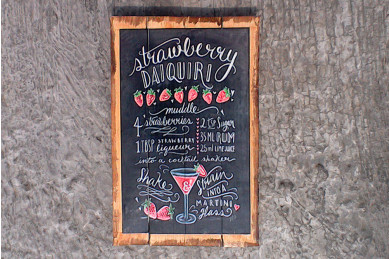 strawberry
DAIQUIRI
muddle
4 strawberries
1 TBSP STRAWBERRY liqueur
2 t Sugar
35 ML RUM
25 ml LIME JUICE
into a cocktail shaker
Shake
&
Strain
INTO A
MARTINI
glass